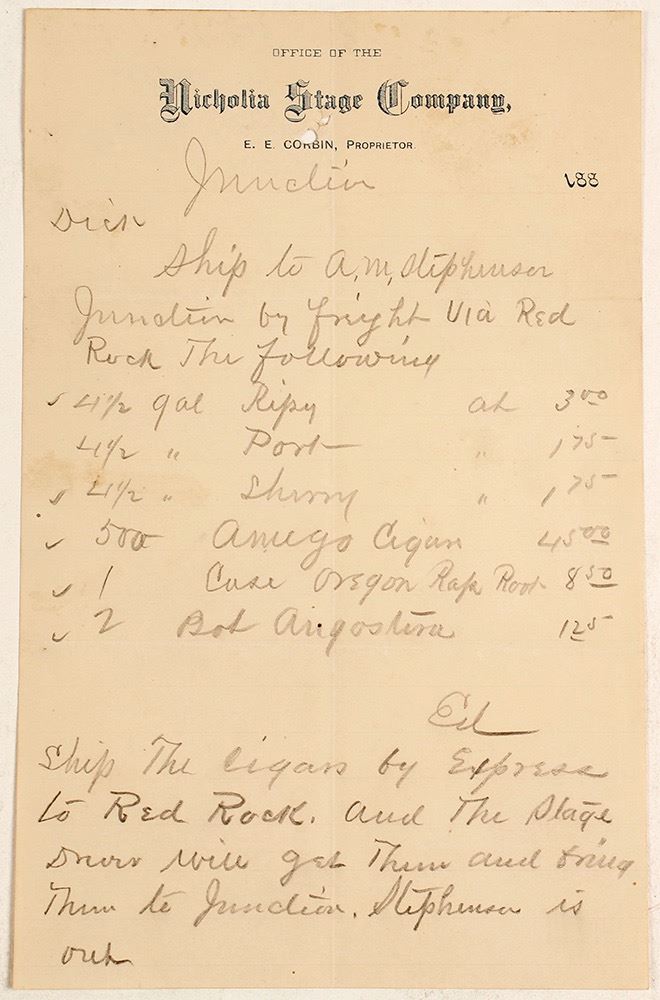 OFFICE OF THE
Nicholia Stage Company,
E. E. CORBIN, PROPRIETOR.
Junction 188
Dick
Ship to A. M. Stephenson
Junction by freight Via Red
Rock The following
✓ 4 1/2 gal Ripy at 3 00
4 1/2 " Port " 1 75
✓ 4 1/2 " Sherry " 1 75
✓ 500 Amego Cigars 45 00
✓ 1 Case Oregon Root 8 50
✓ 2 Bot Angostura 1 25
Ed
Ship The Cigars by Express
to Red Rock. and The Stage
Driver will get Them and bring
Them to Junction. Stephenson is
out